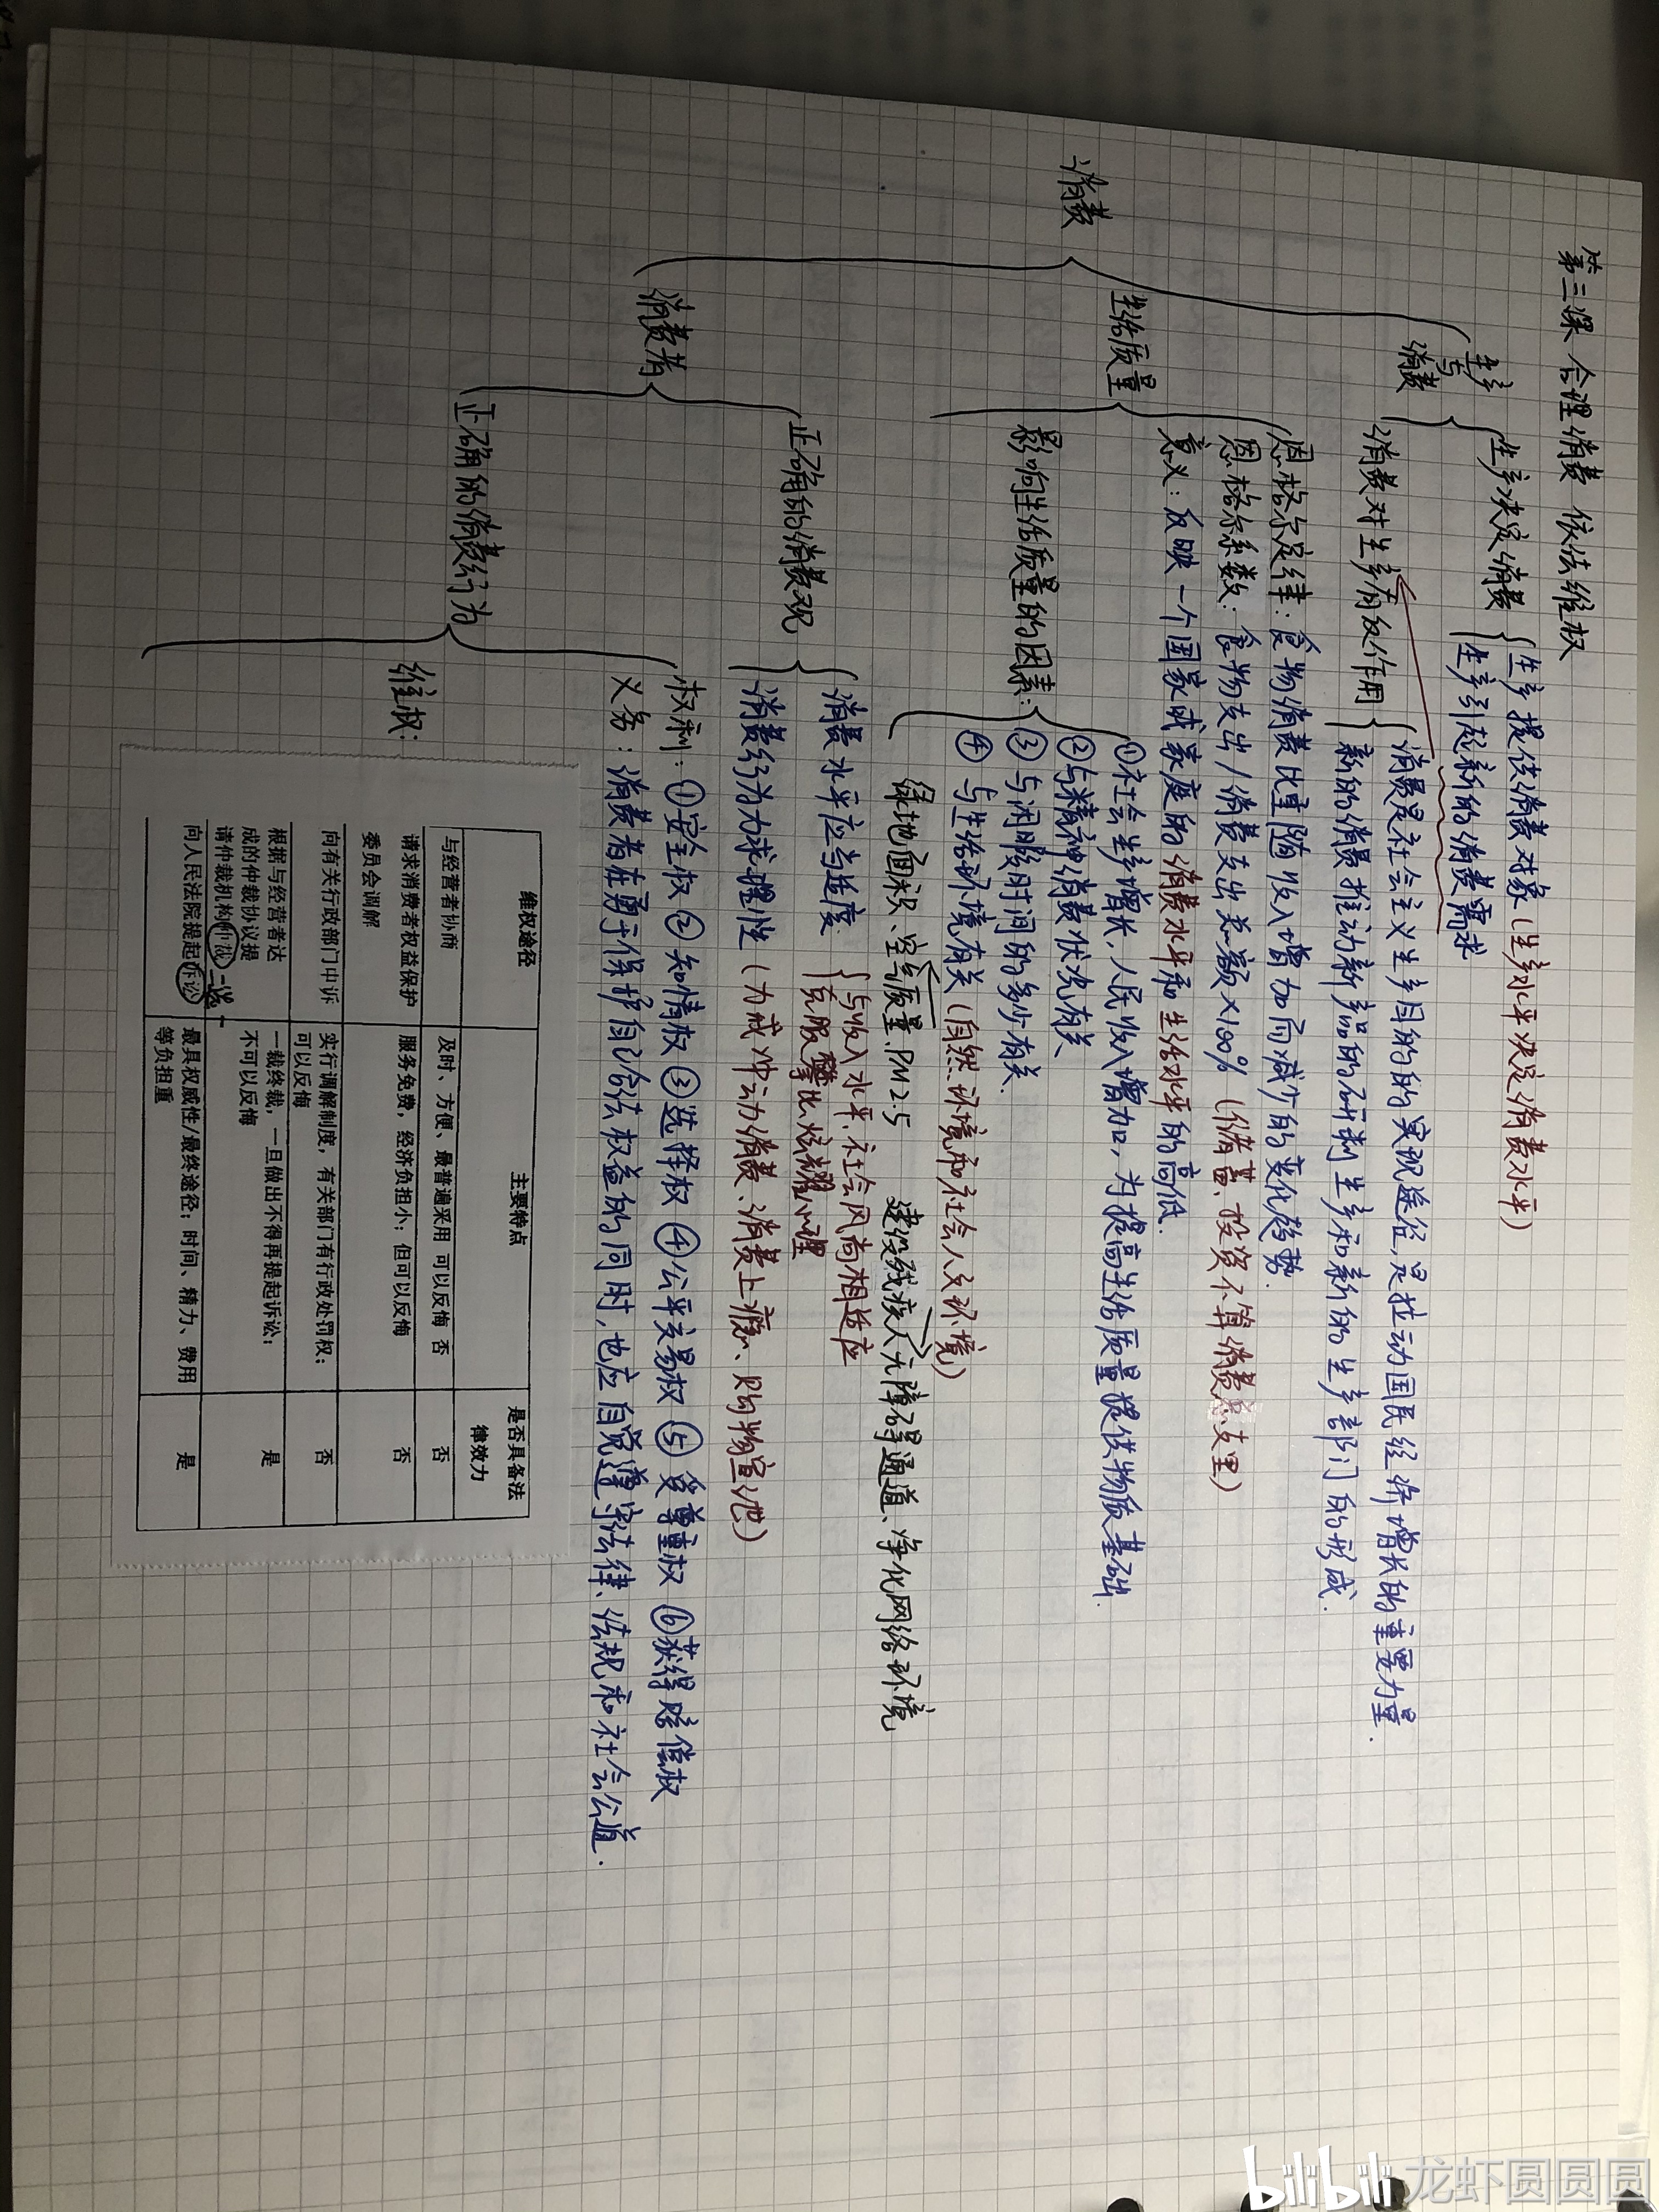 第三课 合理消费 依法维权
消费
生产与消费
生产决定消费
生产提供消费对象(生产水平决定消费水平)
生产引起新的消费需求
消费对生产有反作用
消费是社会主义生产目的的实现途径,是拉动国民经济增长的重要力量.
新的消费推动新产品的研制生产和新的生产部门的形成.
生活质量
恩格尔定律:食物消费比重随收入增加而减少的变化趋势.
恩格尔系数:食物支出/消费支出总额×100% (储蓄、投资不算消费总支里)
意义:反映一个国家或家庭的消费水平和生活水平的高低.
影响生活质量的因素:
①社会生产增长,人民收入增加,为提高生活质量提供物质基础.
②与精神消费状况有关
③与闲暇时间的多少有关.
④与生活环境有关(自然环境和社会人文环境)
绿地面积、空气质量、PM2.5 建设残疾人无障碍通道、净化网络环境
消费者
正确的消费观
消费水平应当适度
与收入水平、社会风尚相适应
克服攀比、炫耀心理
消费行为力求理性(力戒冲动消费、消费上瘾、购物宣泄)
正确的消费行为
权利:①安全权 ②知情权 ③选择权 ④公平交易权 ⑤受尊重权 ⑥获得赔偿权
义务:消费者在勇于保护自己合法权益的同时,也应自觉遵守法律、法规和社会公道.
维权:
维权途径 主要特点 是否具备法律效力
与经营者协商 及时、方便、最普遍采用 可以反悔 否 否
请求消费者权益保护委员会调解 服务免费,经济负担小;但可以反悔 否
向有关行政部门申诉 实行调解制度,有关部门有行政处罚权;可以反悔 否
根据与经营者达成的仲裁协议提请仲裁机构仲裁 一裁终裁,一旦做出不得再提起诉讼;不可以反悔 是
向人民法院提起诉讼 最具权威性/最终途径;时间、精力、费用等负担重 是
bilibili 龙虾圆圆圆